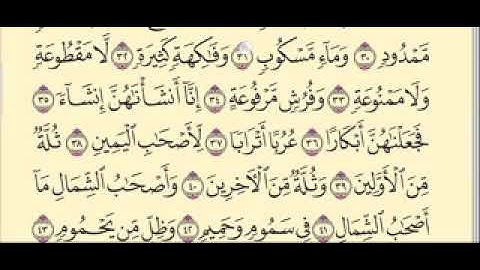 مَّمْدُودٍ ٣٠ وَمَآءٍ مَّسْكُوبٍ ٣١ وَفَٰكِهَةٍ كَثِيرَةٍ ٣٢ لَّا مَقْطُوعَةٍ
وَلَا مَمْنُوعَةٍ ٣٣ وَفُرُشٍ مَّرْفُوعَةٍ ٣٤ إِنَّآ أَنشَأْنَٰهُنَّ إِنشَآءً ٣٥
فَجَعَلْنَٰهُنَّ أَبْكَارًا ٣٦ عُرُبًا أَتْرَابًا ٣٧ لِّأَصْحَٰبِ ٱلْيَمِينِ ٣٨ ثُلَّةٌ
مِّنَ ٱلْأَوَّلِينَ ٣٩ وَثُلَّةٌ مِّنَ ٱلْءَاخِرِينَ ٤٠ وَأَصْحَٰبُ ٱلشِّمَالِ مَآ
أَصْحَٰبُ ٱلشِّمَالِ ٤١ فِى سَمُومٍ وَحَمِيمٍ ٤٢ وَظِلٍّ مِّن يَحْمُومٍ ٤٣